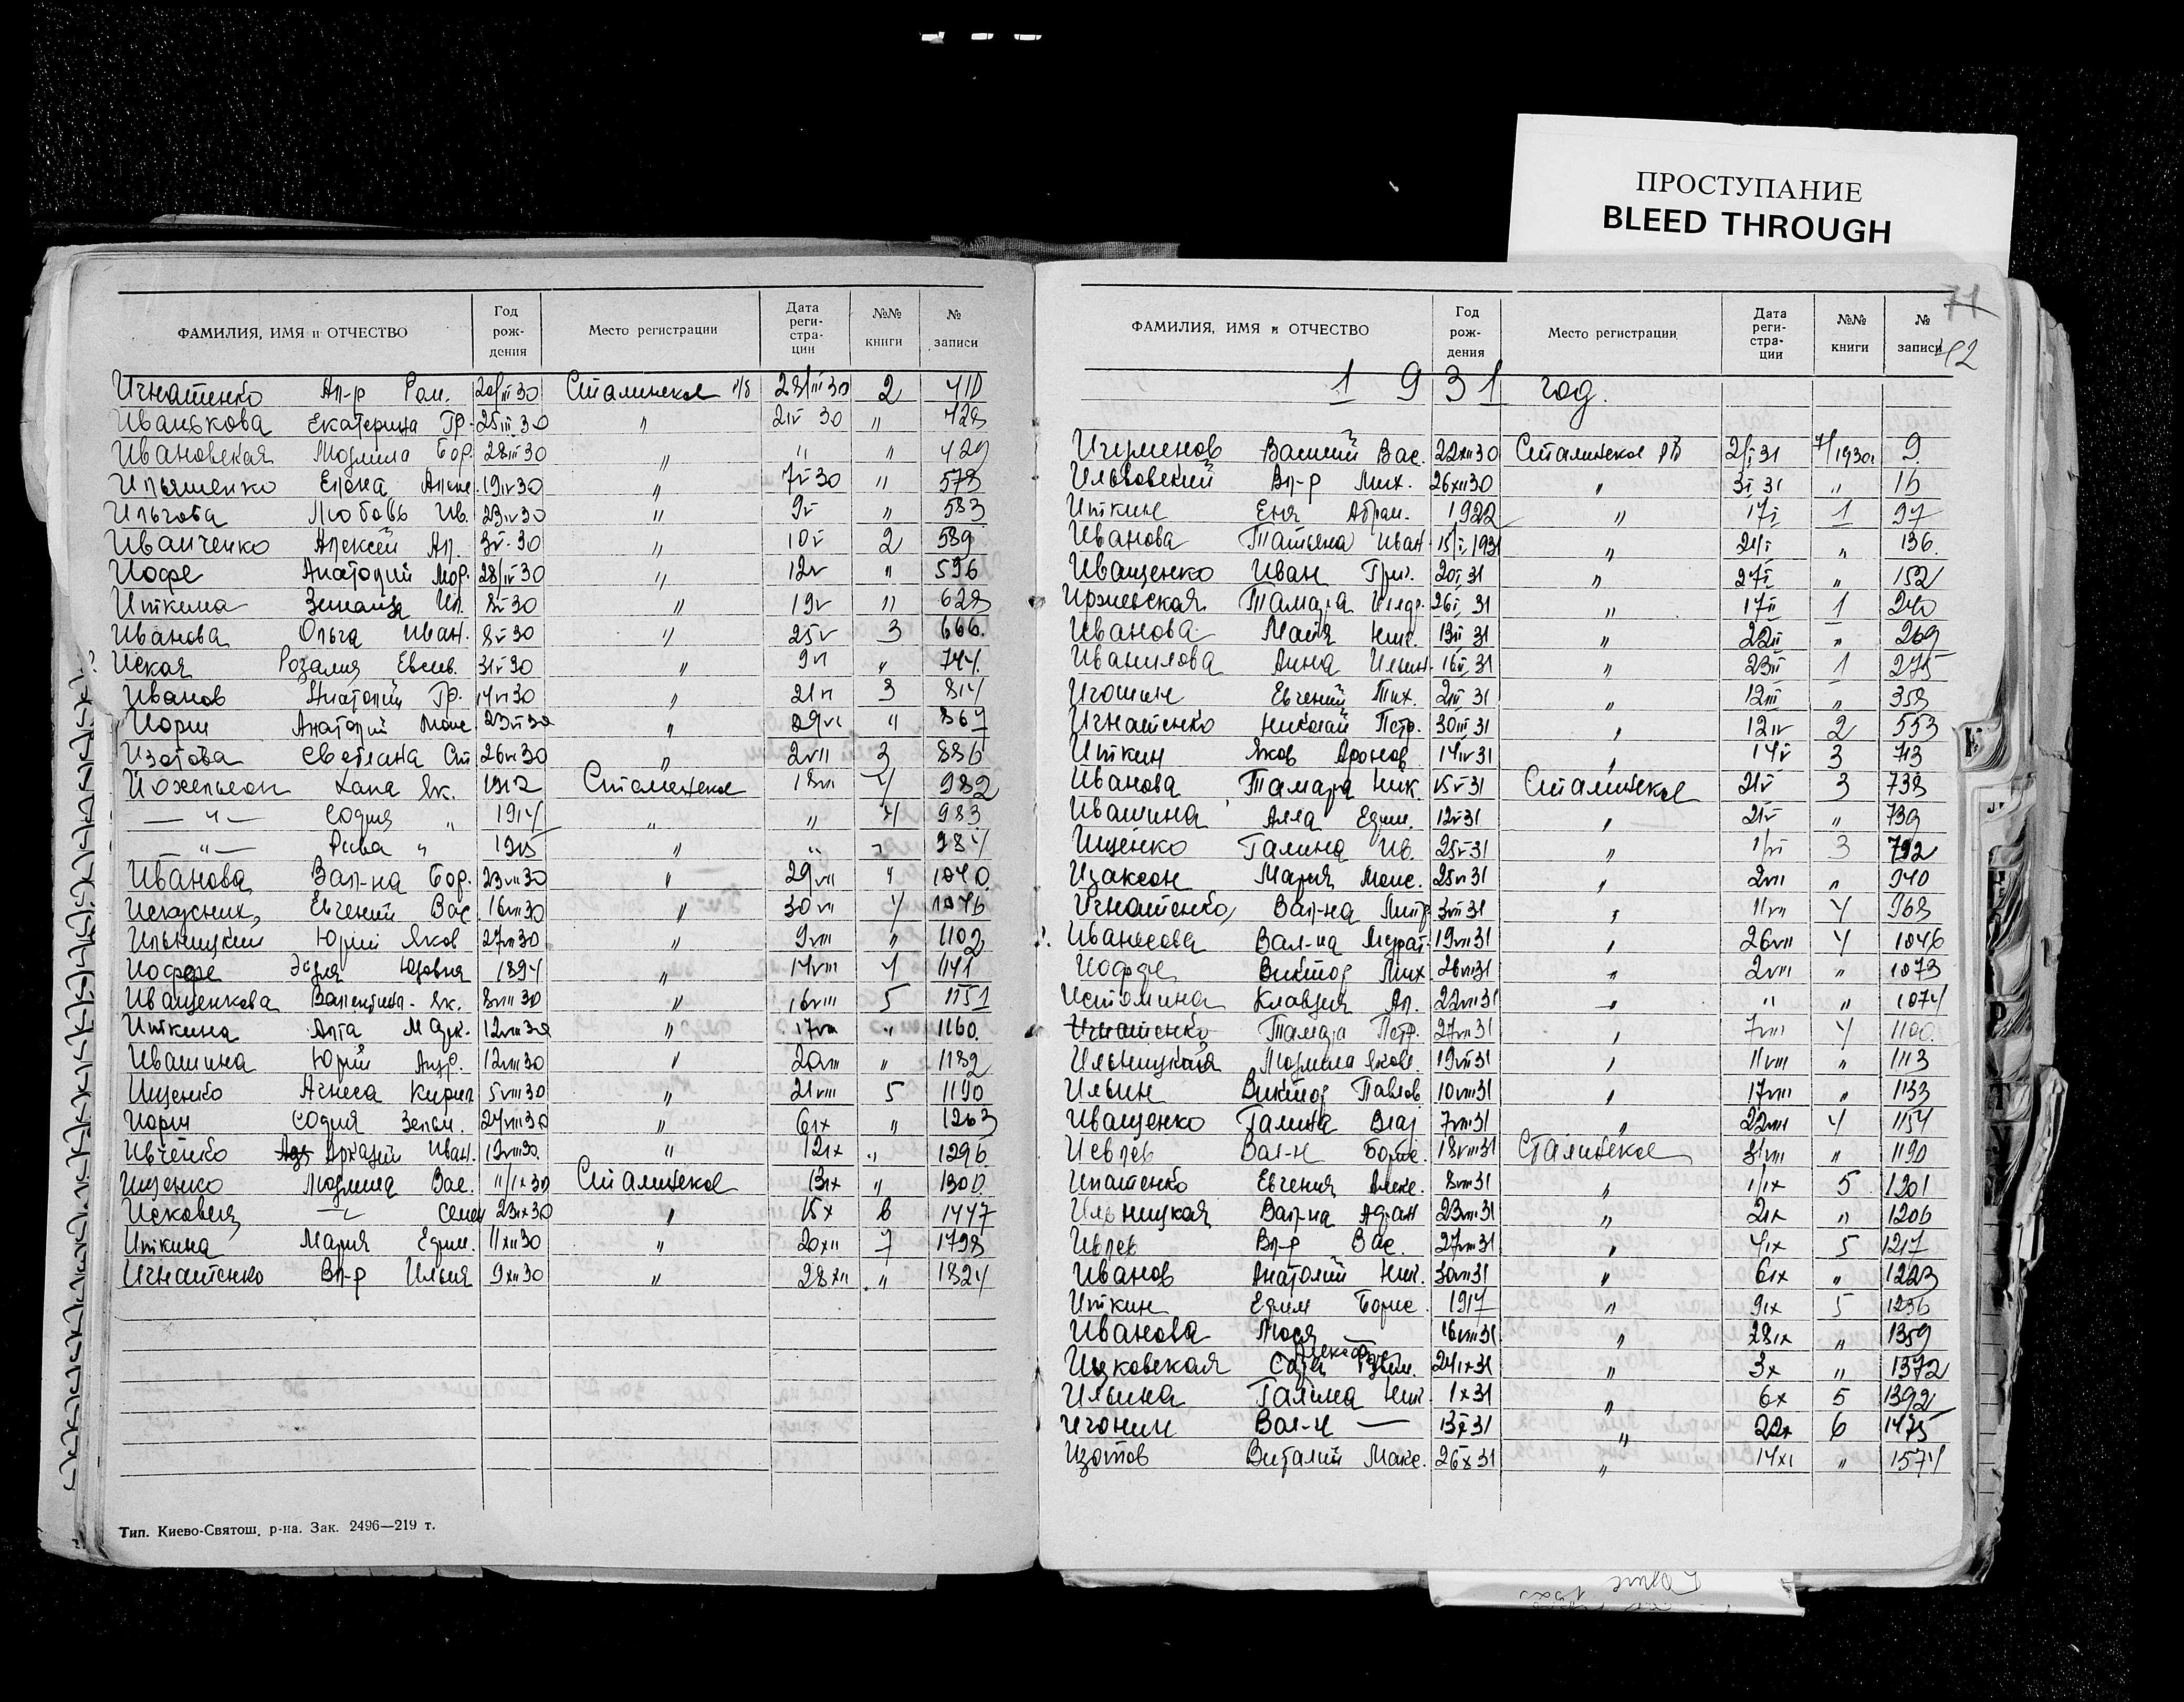 ПРОСТУПАНИЕ
BLEED THROUGH
ФАМИЛИЯ, ИМЯ и ОТЧЕСТВО Год рождения Место регистрации Дата регистрации №№ книги № записи
Игнатенко Ал-р Ром. 20/III 30 Сталинское р/б 28/III 30 2 410
Иванькова Екатерина Гр. 25 III 30 " 2 IV 30 " 428
Ивановская Людмила Бор. 28 III 30 " " " 429
Ильяшенко Елена Алекс. 19 IV 30 " 7 V 30 " 578
Любовь Ив. 23 IV 30 " 9 V " 583
Иванченко Алексей Ал. 3 V 30 " 10 V 2 589
Иофе Анатолий Мор. 28/IV 30 " 12 V " 596
Иткина Ил. 8 V 30 " 19 V " 628
Иванова Ольга Иван. 8 V 30 " 25 V 3 666.
Иская Розалия Евсев. 31 V 30 " 9 VI " 744.
Иванов Анатолий Гр. 14 VI 30 " 21 VI 3 814
Иориш Анатолий 23 VI 30 " 29 VI " 867
Изотова Светлана Ст 26 VI 30 " 2 VII 3 886
Иохельсон Хана Як. 1912 Сталинское 18 VII 4 982
— " — София " 1914 " " 4 983
— " — Рива " 1915 " " " 984
Иванова Вал-на Бор. 23 VII 30 " 29 VII " 1040
Искусник Евгений Вас 16 VII 30 " 30 VII 4 1046
Ильницкий Юрий Яков 27 VII 30 " 9 VIII " 1102
Иоффе Юдовна 1894 " 14 VIII 4 1141
Иващенкова Валентина Як. 8 VIII 30 " 16 VIII 5 1151
Иткина Алла Марк. 12 VIII 30 " 17 VIII " 1160
Ивашина Юрий Андр. 12 VIII 30 " 20 VIII " 1182
Ищенко Агнеса Кирил 5 VIII 30 " 21 VIII 5 1190
Иориш София Зельм. 24 VIII 30 " 6 IX " 1263
Ивченко Аркадий Иван. 12 VIII 30 " 12 IX " 1296
Ищенко Людмила Вас. 11/IX 30 Сталинское 13 IX " 1300
Искович — Семен 23 IX 30 " 15 X 6 1447
Иткина Мария Ефим. 11 XII 30 " 20 XII 7 1798
Игнатенко Вл-р Ильич 9 XII 30 " 28 XII " 1824
Тип. Киево-Святош. р-на. Зак. 2496—219 т.
71
42
ФАМИЛИЯ, ИМЯ и ОТЧЕСТВО Год рождения Место регистрации Дата регистрации №№ книги № записи
1931 год.
Игуменов Василий Вас. 22 XII 30 Сталинское р/б 2/I 31 7/1930г 9
Ильвовский Вл-р Мих. 26 XII 30 " 3 I 31 " 16
Иткин Еня Абрам. 1922 " 17 I 1 97
Иванова Татьяна Иван 15/I 1931 " 24/I " 136.
Иващенко Иван Григ. 20 I 31 " 27 I " 152
Иржевская Тамара 26 I 31 " 17 II 1 240
Иванова Майя Ник. 13 II 31 " 22 II " 269
Иванилова Анна Ильин. 16 II 31 " 23 II 1 275
Игошин Евгений Тих. 2 III 31 " 12 III " 358
Игнатенко Николай Петр. 30 III 31 " 12 IV 2 553
Иткин Яков Аронов. 14 IV 31 " 14 V 3 713
Иванова Тамара Ник. 15 V 31 Сталинское 21 V 3 738
Ивашина Алла Ефим. 12 V 31 " 21 V " 739
Ищенко Галина Ив. 25 V 31 " 1/VI 3 792
Изаксон Мария Моис. 25 VI 31 " 2 VII " 940
Игнатенко Вал-на Дмитр 3 VII 31 " 11 VII 4 968
Иванесова Вал-на 19 VII 31 " 26 VII 4 1046
Иоффе Виктор Мих 26 VII 31 " 2 VIII " 1073
Истомина Клавдия Ал. 22 VII 31 " " " 1074
Игнатенко Тамара Петр. 27 VII 31 " 7 VIII 4 1100.
Ильницкая Людмила Яков. 19 VII 31 " 11 VIII " 1113
Ильин Виктор Павлов 10 VIII 31 " 17 VIII " 1133
Иващенко Галина Влад 7 VIII 31 " 22 VIII 4 1154
Иевлев Вал-н Борис. 18 VIII 31 Сталинское 31 VIII " 1190
Ипатенко Евгения Алекс. 8 VIII 31 " 1/IX 5 1201
Ильницкая Вал-на Адам 23 VIII 31 " 2 IX " 1206
Ивлев Вл-р Вас. 27 VIII 31 " 4 IX 5 1217
Иванов Анатолий Ник. 30 VIII 31 " 6 IX " 1223
Иткин Ефим Борис. 1917 " 9 IX 5 1236
Иванова Люся — 16 VIII 31 " 28 IX " 1359
Ицковская Сара 24 IX 31 " 3 X " 1372
Ильина Галина Ник 1 X 31 " 6 X 5 1392
Игонин Вал-н — 13 X 31 " 22 X 6 1475
Изотов Виталий Макс. 26 X 31 " 14 XI " 1574